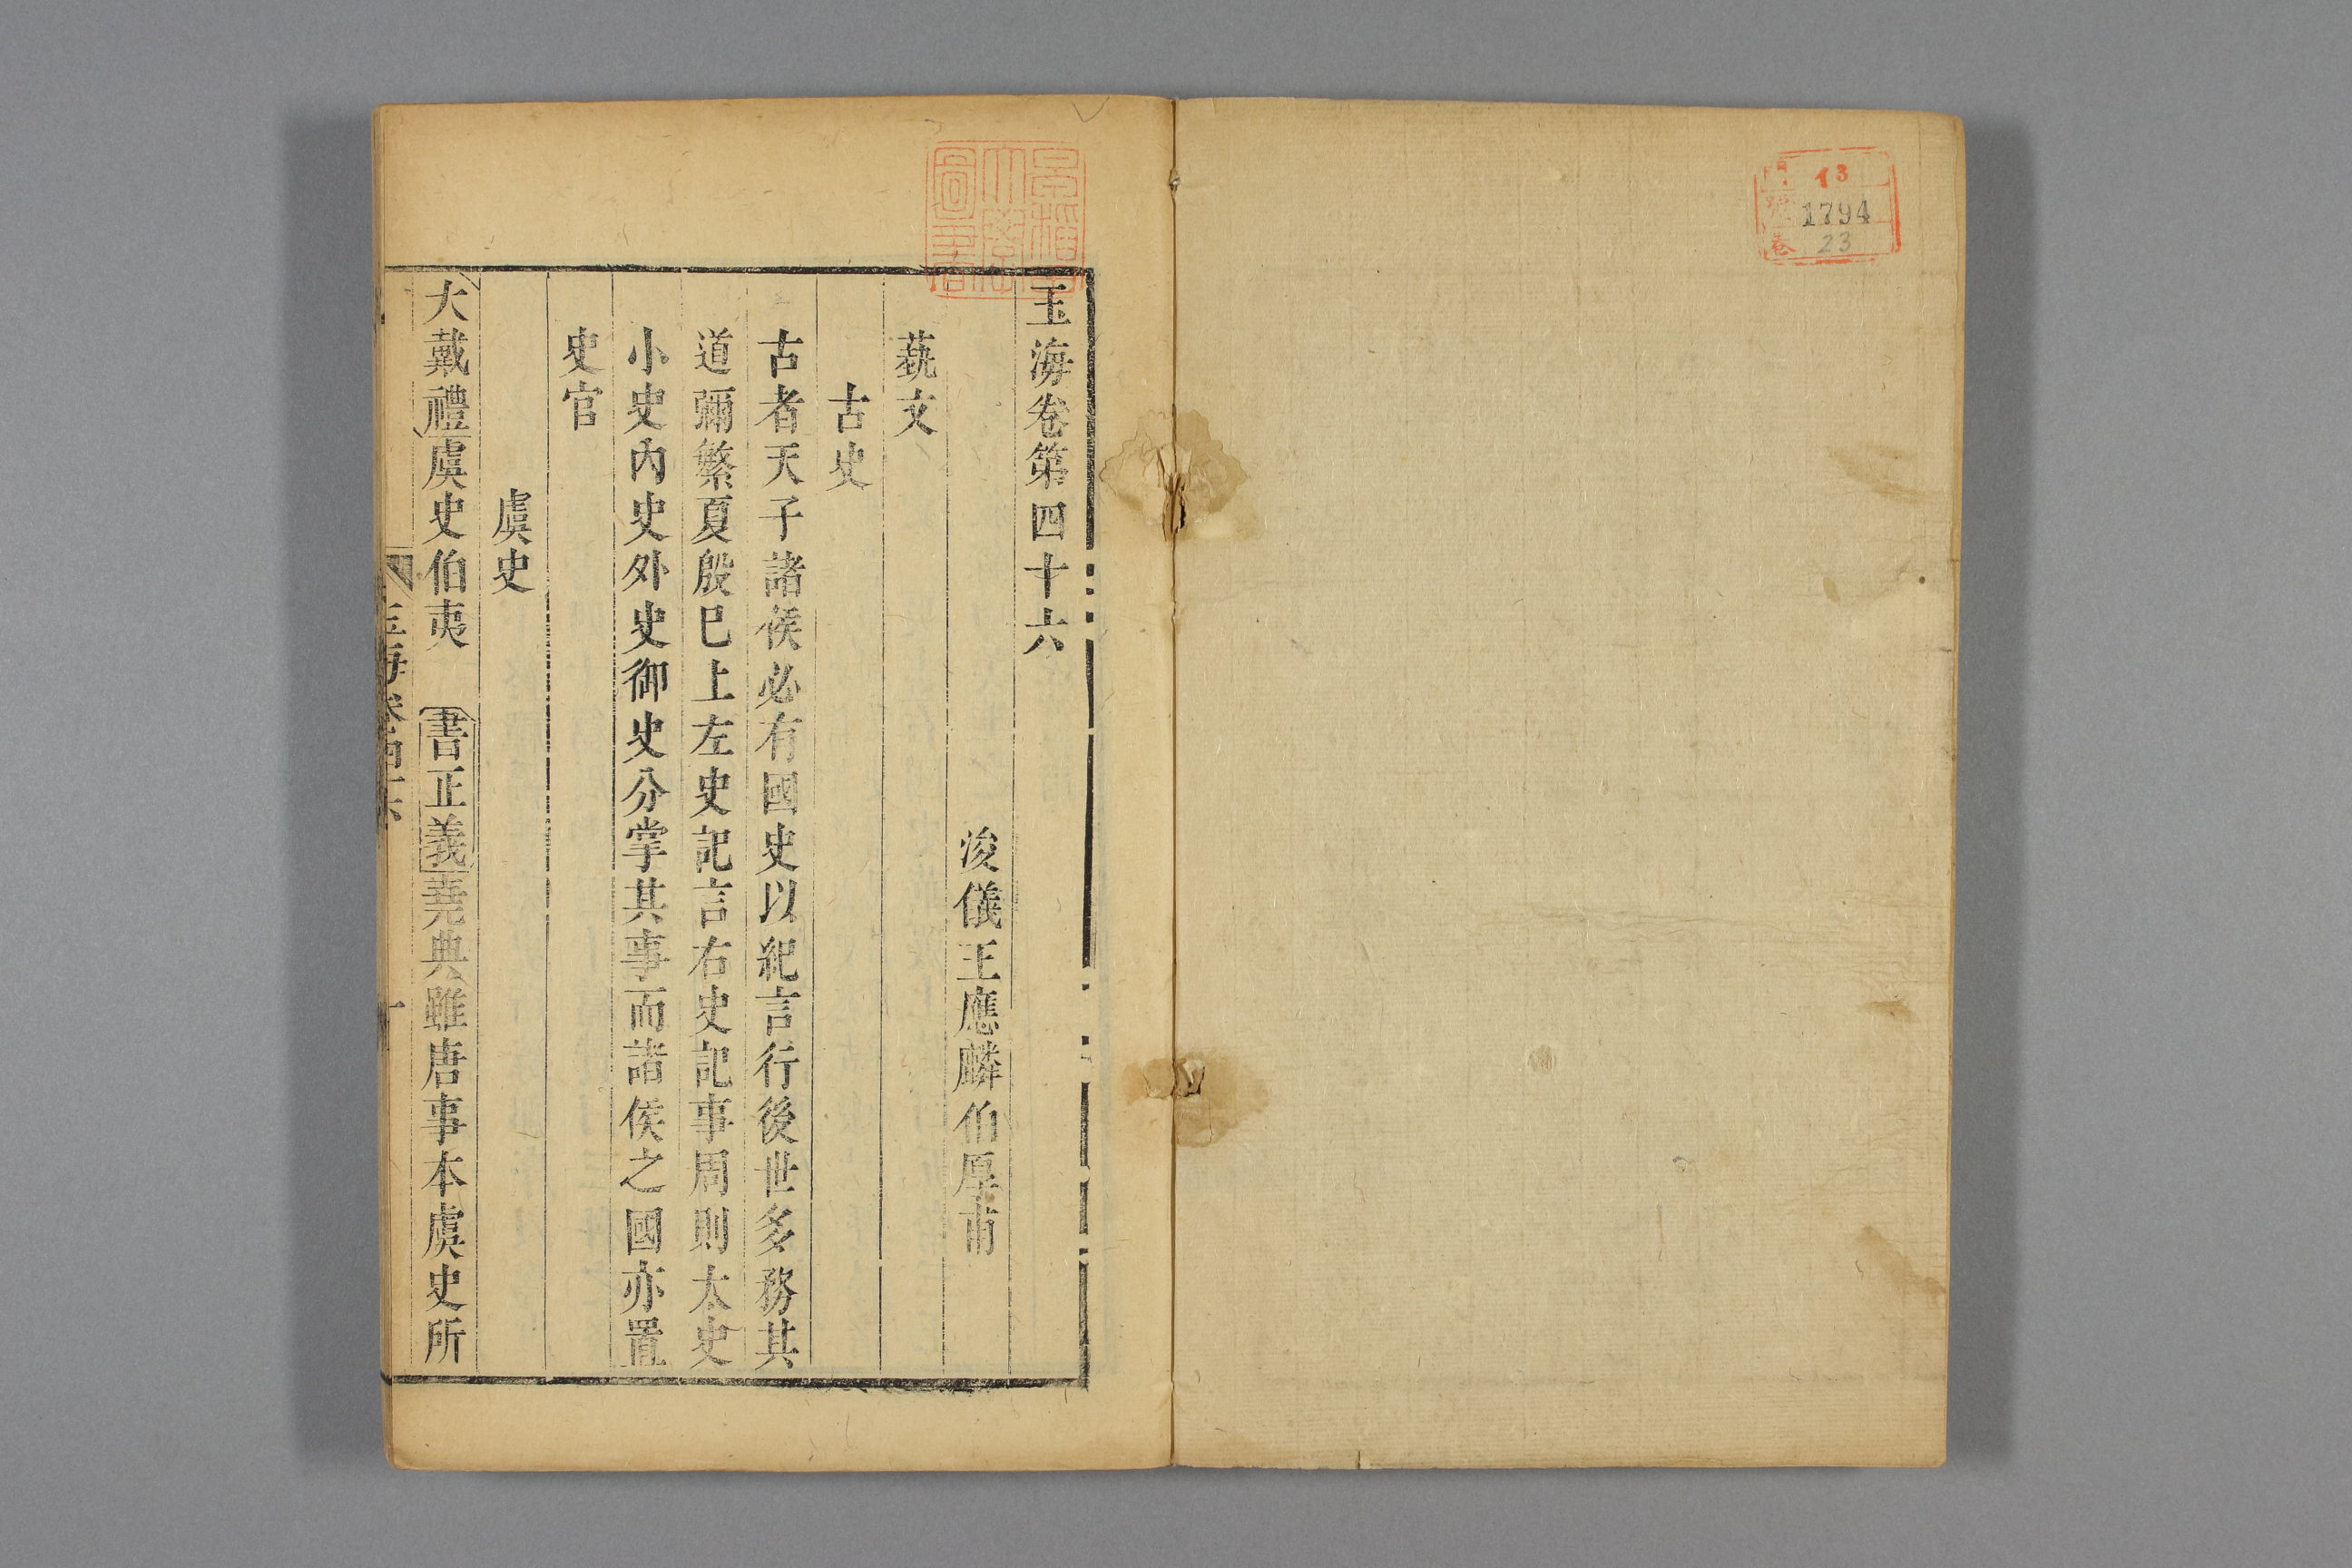 門 13
號 1794
卷 23
玉海卷第四十六
浚儀王應麟伯厚甫
藝文
古史
古者天子諸侯必有國史以紀言行後世多務其
道彌繁夏殷已上左史記言右史記事周則太史
小史內史外史御史分掌其事而諸侯之國亦置
史官
虞史
大戴禮虞史伯夷 書正義堯典雖唐事本虞史所
玉海卷四十六
一